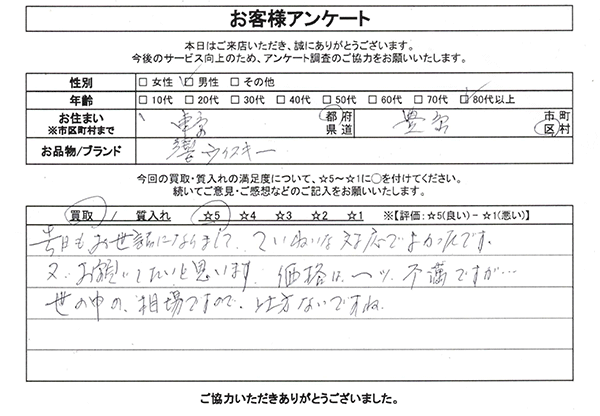 お客様アンケート
本日はご来店いただき、誠にありがとうございます。
今後のサービス向上のため、アンケート調査のご協力をお願いいたします。
性別 □ 女性 □ 男性 □ その他
年齢 □ 10代 □ 20代 □ 30代 □ 40代 □ 50代 □ 60代 □ 70代 □ 80代以上
お住まい 東京 都 府 豊島 市 町
※市区町村まで 県 道 区 村
お品物/ブランド 響ウィスキー
今回の買取・質入れの満足度について、☆5～☆1に○を付けてください。
続いてご意見・ご感想などのご記入をお願いいたします。
買取 / 質入れ ☆5 ☆4 ☆3 ☆2 ☆1 ※【評価:☆5(良い)－☆1(悪い)】
日もお世話になりまして、ていねいな対応でよかったです。
又、お願いしたいと思います。価格は、一ツ、不満ですが…
世の中の、相場ですので、仕方ないですね。
ご協力いただきありがとうございました。